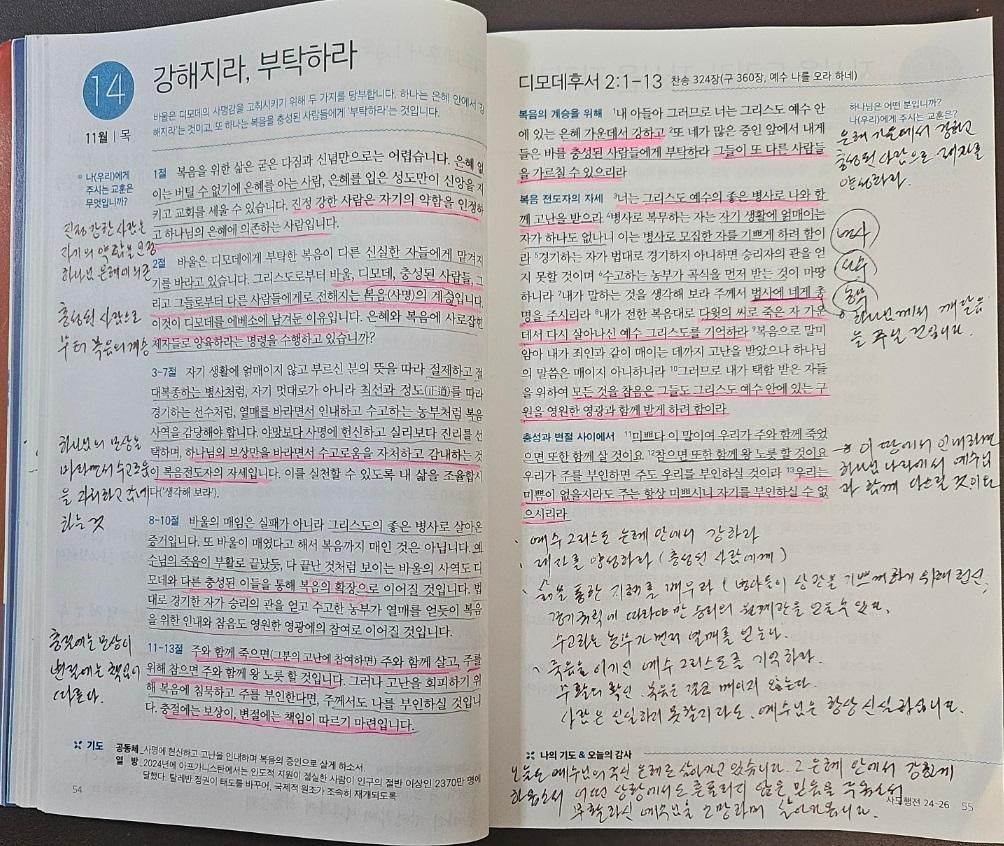 14
11월 | 목
강해지라, 부탁하라
바울은 디모데의 사명감을 고취시키기 위해 두 가지를 당부합니다. 하나는 은혜 안에서 '강
해지라'는 것이고, 또 하나는 복음을 충성된 사람들에게 '부탁하라'는 것입니다.
나(우리)에게
주시는 교훈은
무엇입니까?
진정 강한 사람은
자기의 약함을 인정
하나님 은혜에 의존
충성된 사람으로
부터 복음의 계승
하나님의 보상을
바라면서 수고로움
을 감내
하는 것
충절에는 보상이
변절에는 책임이
따른다.
1절 복음을 위한 삶은 굳은 다짐과 신념만으로는 어렵습니다. 은혜 없
이는 버틸 수 없기에 은혜를 아는 사람, 은혜를 입은 성도만이 신앙을 지
키고 교회를 세울 수 있습니다. 진정 강한 사람은 자기의 약함을 인정하
고 하나님의 은혜에 의존하는 사람입니다.
2절 바울은 디모데에게 부탁한 복음이 다른 신실한 자들에게 맡겨지
기를 바라고 있습니다. 그리스도로부터 바울, 디모데, 충성된 사람들, 그
리고 그들로부터 다른 사람들에게로 전해지는 복음(사명)의 계승입니다.
이것이 디모데를 에베소에 남겨둔 이유입니다. 은혜와 복음에 사로잡힌
제자들로 양육하라는 명령을 수행하고 있습니까?
3-7절 자기 생활에 얽매이지 않고 부르신 분의 뜻을 따라 절제하고 절
대복종하는 병사처럼, 자기 멋대로가 아니라 최선과 정도(正道)를 따라
경기하는 선수처럼, 열매를 바라면서 인내하고 수고하는 농부처럼 복음
사역을 감당해야 합니다. 야망보다 사명에 헌신하고 실리보다 진리를 선
택하며, 하나님의 보상만을 바라면서 수고로움을 자처하고 감내하는 것
이 복음전도자의 자세입니다. 이를 실천할 수 있도록 내 삶을 조율합시
다('생각해 보라').
8-10절 바울의 매임은 실패가 아니라 그리스도의 좋은 병사로 살아온
증거입니다. 또 바울이 매였다고 해서 복음까지 매인 것은 아닙니다. 예
수님의 죽음이 부활로 끝났듯, 다 끝난 것처럼 보이는 바울의 사역도 디
모데와 다른 충성된 이들을 통해 복음의 확장으로 이어질 것입니다. 법
대로 경기한 자가 승리의 관을 얻고 수고한 농부가 열매를 얻듯이 복음
을 위한 인내와 참음도 영원한 영광에의 참여로 이어질 것입니다.
11-13절 주와 함께 죽으면(그분의 고난에 참여하면) 주와 함께 살고, 주를
위해 참으면 주와 함께 왕 노릇 할 것입니다. 그러나 고난을 회피하기 위
해 복음에 침묵하고 주를 부인한다면, 주께서도 나를 부인하실 것입니
다. 충절에는 보상이, 변절에는 책임이 따르기 마련입니다.
기도
공동체 사명에 헌신하고 고난을 인내하며 복음의 증인으로 살게 하소서.
열 방 2024년에 아프가니스탄에서는 인도적 지원이 절실한 사람이 인구의 절반 이상인 2370만 명에
달했다. 탈레반 정권이 태도를 바꾸어, 국제적 원조가 조속히 재개되도록
54
디모데후서 2:1-13 찬송 324장(구 360장, 예수 나를 오라 하네)
복음의 계승을 위해 1내 아들아 그러므로 너는 그리스도 예수 안
에 있는 은혜 가운데서 강하고 2또 네가 많은 증인 앞에서 내게
들은 바를 충성된 사람들에게 부탁하라 그들이 또 다른 사람들
을 가르칠 수 있으리라
복음 전도자의 자세 3너는 그리스도 예수의 좋은 병사로 나와 함
께 고난을 받으라 4병사로 복무하는 자는 자기 생활에 얽매이는
자가 하나도 없나니 이는 병사로 모집한 자를 기쁘게 하려 함이
라 5경기하는 자가 법대로 경기하지 아니하면 승리자의 관을 얻
지 못할 것이며 6수고하는 농부가 곡식을 먼저 받는 것이 마땅
하니라 7내가 말하는 것을 생각해 보라 주께서 범사에 네게 총
명을 주시리라 8내가 전한 복음대로 다윗의 씨로 죽은 자 가운
데서 다시 살아나신 예수 그리스도를 기억하라 9복음으로 말미
암아 내가 죄인과 같이 매이는 데까지 고난을 받았으나 하나님
의 말씀은 매이지 아니하니라 10그러므로 내가 택함 받은 자들
을 위하여 모든 것을 참음은 그들도 그리스도 예수 안에 있는 구
원을 영원한 영광과 함께 받게 하려 함이라
충성과 변절 사이에서 11미쁘다 이 말이여 우리가 주와 함께 죽었
으면 또한 함께 살 것이요 12참으면 또한 함께 왕 노릇 할 것이요
우리가 주를 부인하면 주도 우리를 부인하실 것이라 13우리는
미쁨이 없을지라도 주는 항상 미쁘시니 자기를 부인하실 수 없
으시리라
하나님은 어떤 분입니까?
나(우리)에게 주시는 교훈은?
은혜 가운데서 강하고
충성된 사람으로 제자를
양성하라.
병사
선수
농부
하나님께서 깨달음
을 주실 것입니다.
이 땅에서 인내하면
하나님 나라에서 예수님
과 함께 다스릴 것이다
예수 그리스도 은혜 안에서 강하라
제자를 양성하라 (충성된 사람에게)
삶을 통한 지혜를 깨우라 (병사들이 상관을 기쁘게 하기 위해 헌신,
경기 규칙에 따라야만 승리의 월계관을 얻을 수 있고,
수고하는 농부가 먼저 열매를 얻는다.
죽음을 이기신 예수 그리스도를 기억하라.
부활의 확신. 복음은 결코 매이지 않는다.
사람은 신실하지 못할지라도, 예수님은 항상 신실하십니다.
나의 기도 & 오늘의 감사
오늘도 예수님의 크신 은혜로 살아가고 있습니다. 그 은혜 안에서 강하게
하옵소서 어떤 상황에서도 흔들리지 않는 믿음을 주옵소서
부활하신 예수님을 소망하며 살아가렵니다.
사도행전 24-26 55